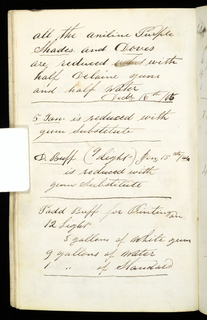 all the aniline Purple
Shades and Doves
are reduced with
half Delaine gum
and half Water
July 18th /76
5 Tan is reduced with
gum substitute
D. Buff (9 Light) Jan 15th/76
is reduced with
gum Substitute
Padd Buff for Printing on
12 Light
5 gallons of White gum
9 gallons of Water
1 " of Standard